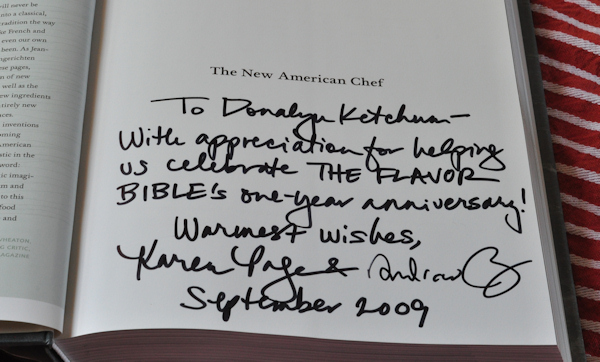 ill never be
nto a classical,
tradition the way
ke French and
even our own
been. As Jean-
ngerichten
ese pages,
n of new
well as the
ew ingredients
ntirely new
ces.
inventions
oming
American
atic in the
word:
ic imagi-
m and
to this
food
and
WHEATON,
G CRITIC,
MAGAZINE
The New American Chef
To Donalyn Ketchum-
With appreciation for helping
us celebrate THE FLAVOR
BIBLE's one-year anniversary!
Warmest wishes,
Karen Page & Andrew
September 2009